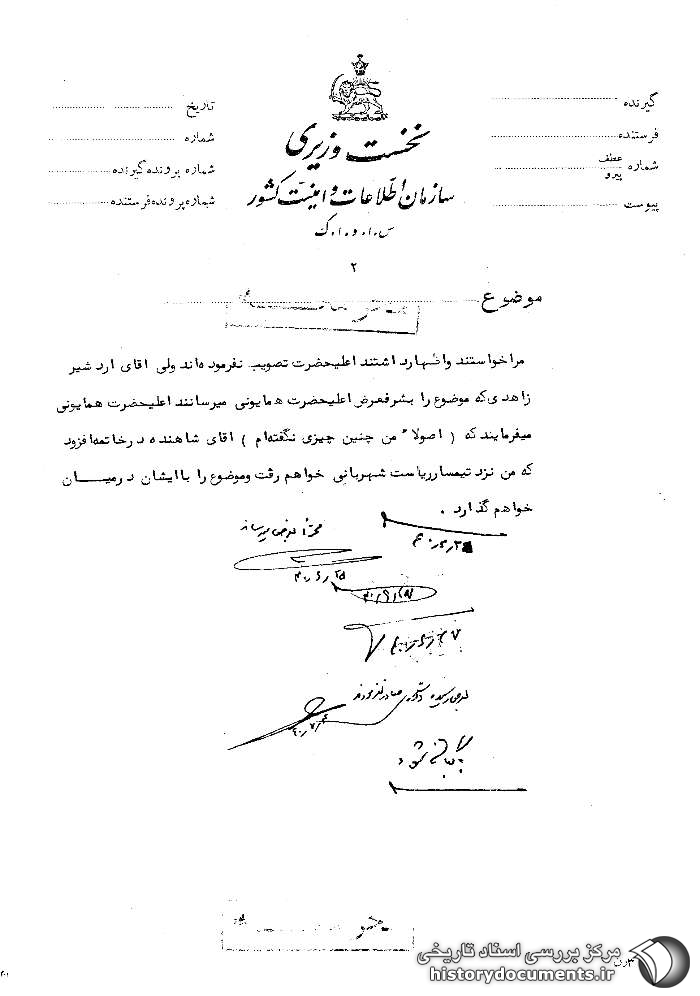 گیرنده
فرستنده
شماره عطف پیرو
پیوست
نخست وزیری
سازمان اطلاعات و امنیت کشور
س.ا.و.ا.ک
تاریخ
شماره
شماره پرونده گیرنده
شماره پرونده فرستنده
۲
موضوع
مرا خواستند و اظهار داشتند اعلیحضرت تصویب نفرموده‌اند ولی اقای ارد شیر
زاهدی که موضوع را بشرفعرض اعلیحضرت همایونی میرسانند اعلیحضرت همایونی
میفرمایند که ( اصولا" من چنین چیزی نگفته‌ام ) اقای شاهنده در خاتمه افزود
که من نزد تیمسار ریاست شهربانی خواهم رفت وموضوع را باایشان درمیـــان
خواهم گذارد .
محترماً بعرض میرساند
۴۰٫۶٫۲۵
بعرض رسیده دستوری صادر نفرمودند
بایگانی شود
مرکز بررسی اسناد تاریخی
historydocuments.ir